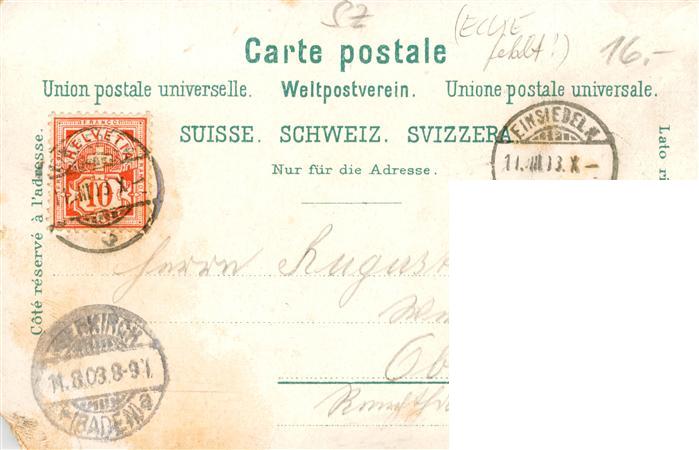 SZ
(ECKE
fehlt!)
16.-
Carte postale
Union postale universelle. Weltpostverein. Unione postale universale.
SUISSE. SCHWEIZ. SVIZZERA
Nur für die Adresse.
Côté réservé à l'adresse.
Lato ri
FRANCO
HELVETIA
10
EINSIEDELN
11.III.03.X-
III.03.X
Herrn August
Ob
OBERKIRCH
11.8.03.8-9V.
(BADEN) a